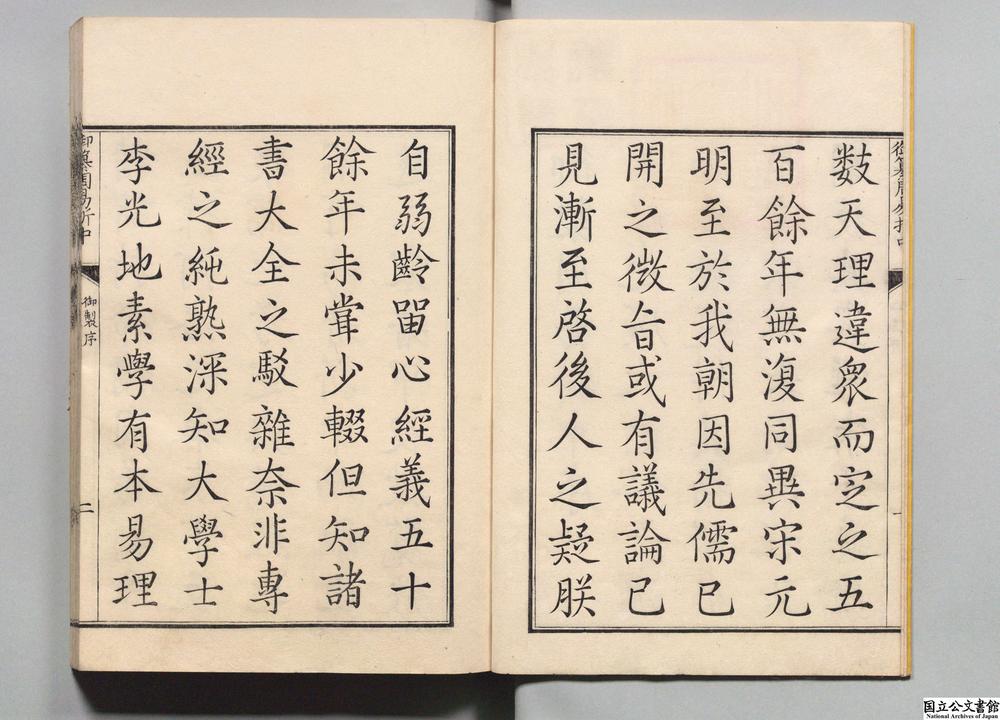 御纂周易折中
一
數天理違衆而定之五
百餘年無復同異宋元
明至於我朝因先儒已
開之微㫖或有議論已
見漸至啓後人之疑朕
自弱齡留心經義五十
餘年未甞少輟但知諸
書大全之駁雜奈非專
經之純熟深知大學士
李光地素學有本易理
御纂周易折中
御製序
二
国立公文書館
National Archives of Japan